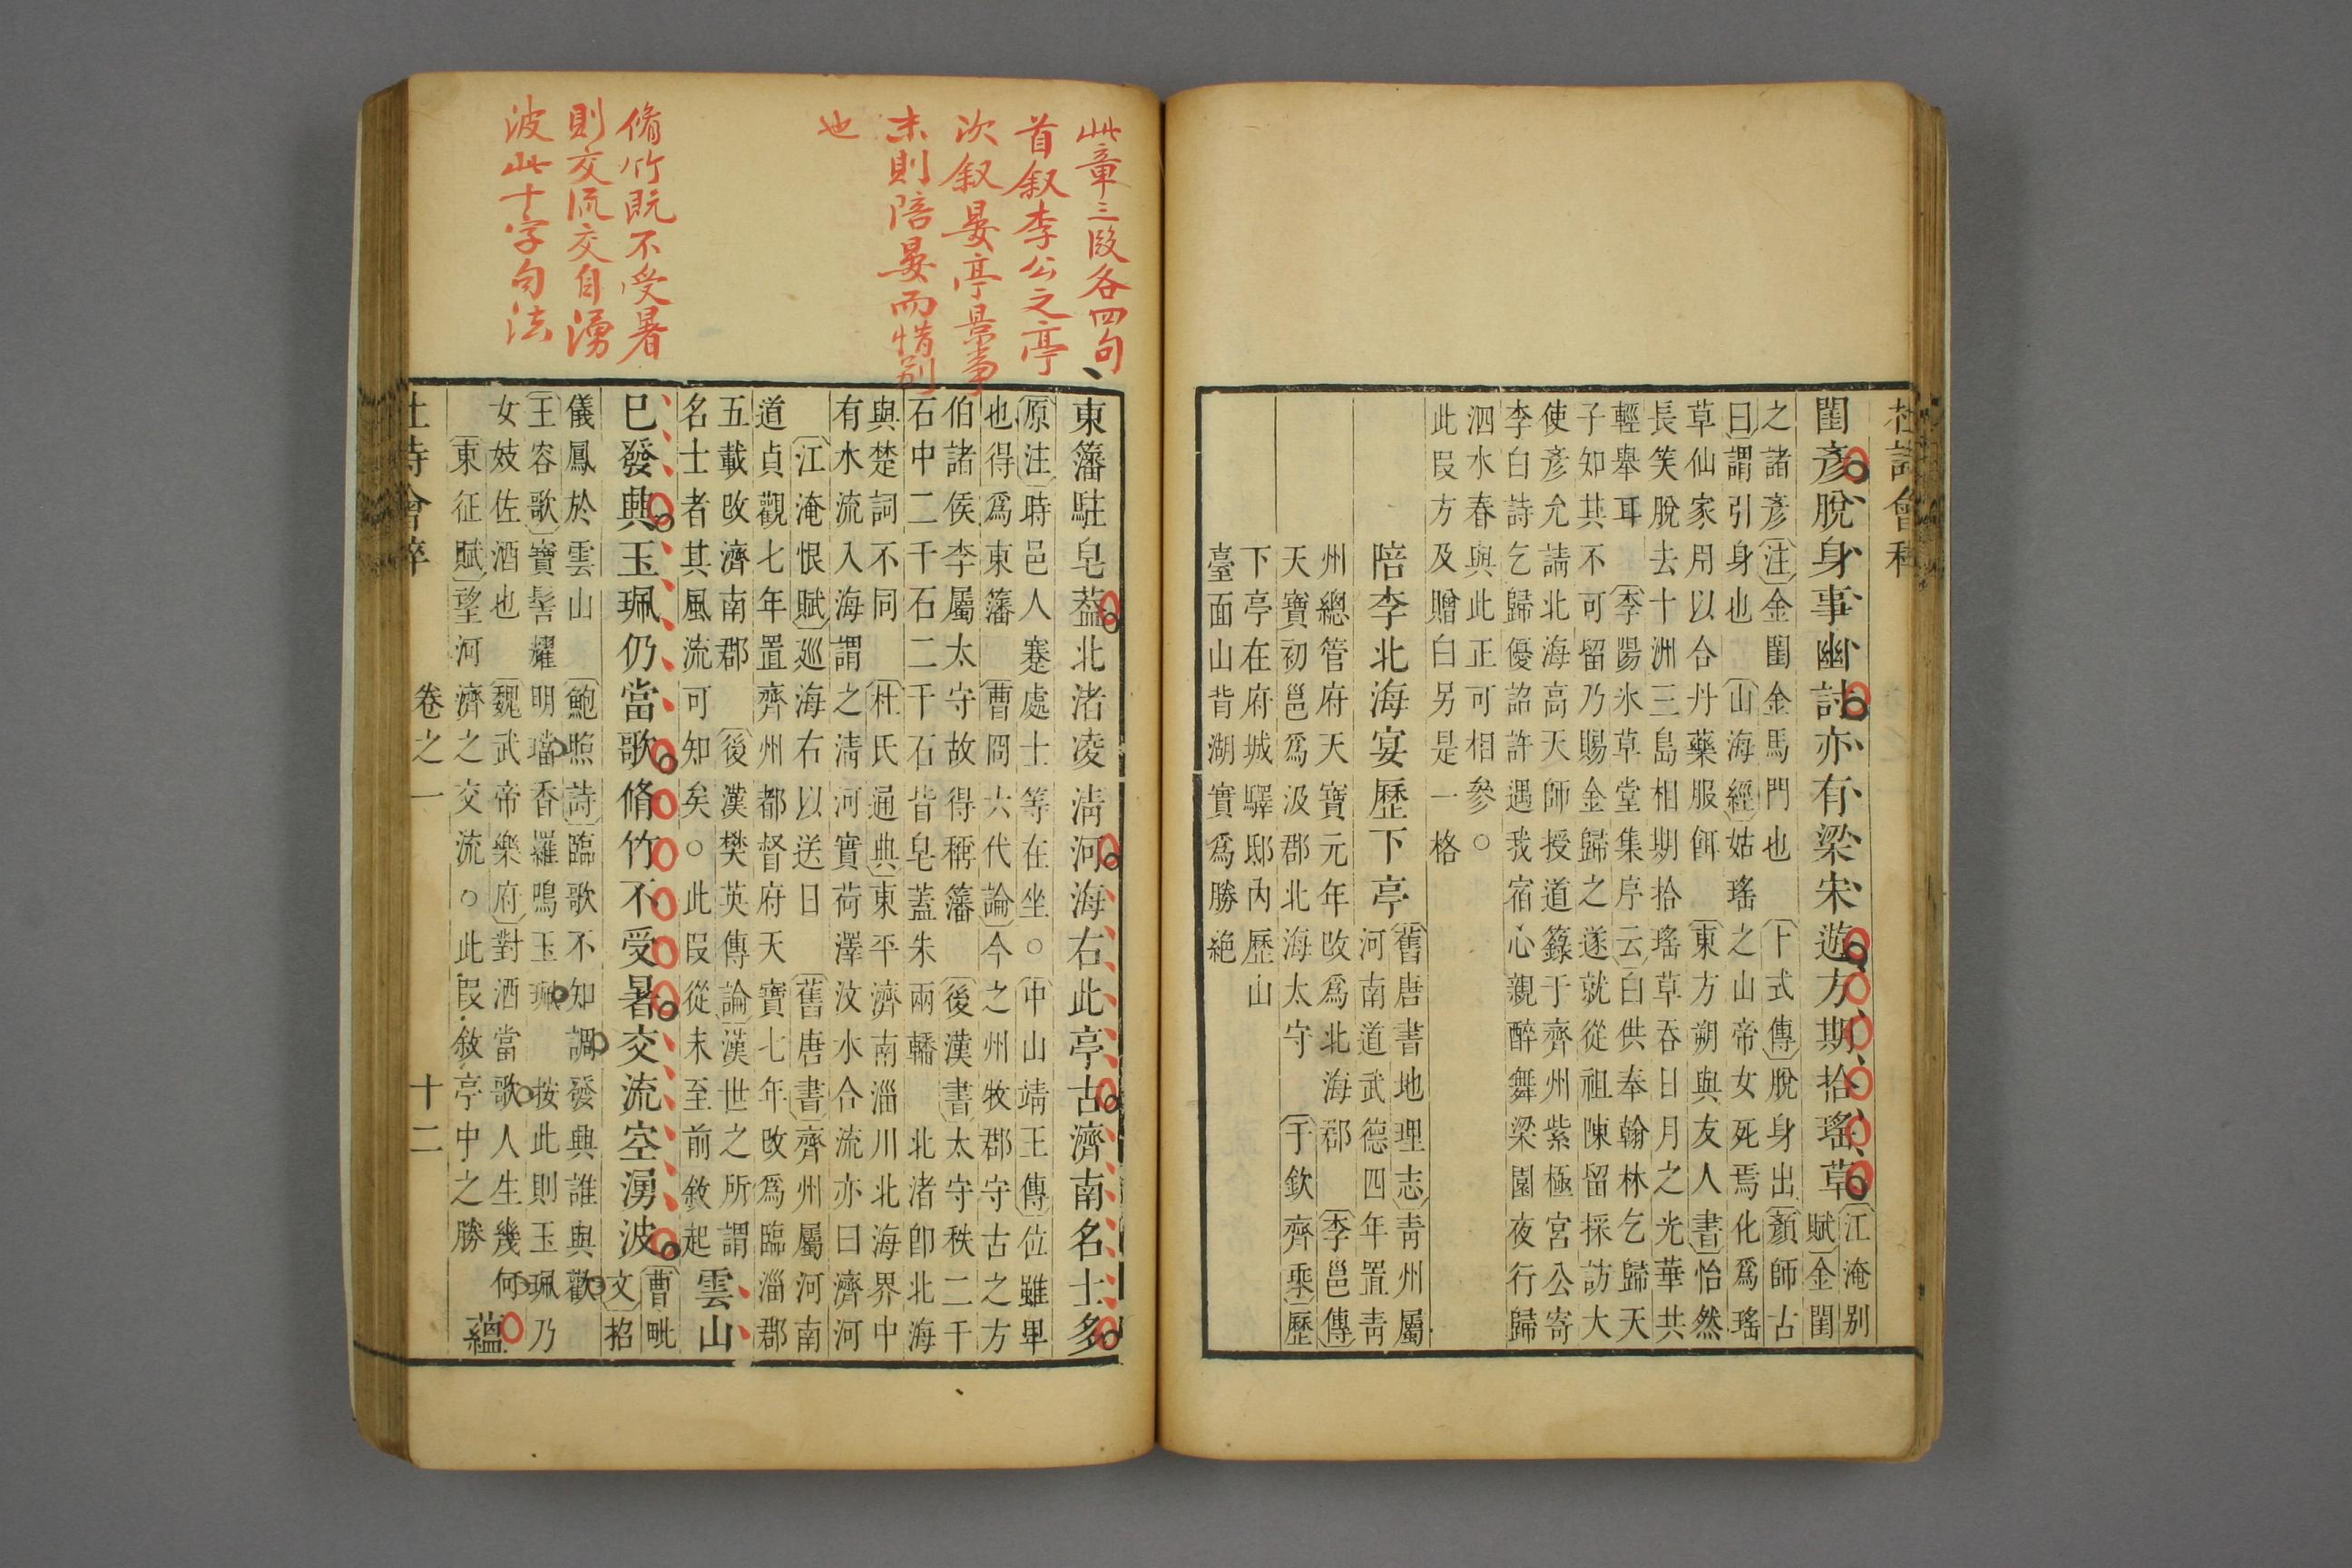 閨彥脫身事幽討亦有梁宋遊方期拾瑤草
江淹別
賦金閨
之諸彥注金閨金馬門也
卞式傳脫身出顏師古
曰謂引身也
山海經姑瑤之山帝女死焉化爲瑤
草仙家用以合丹藥服餌
東方朔與友人書怡然
長笑脫去十洲三島相期拾瑤草吞日月之光華共
輕舉耳
李陽氷草堂集序云白供奉翰林乞歸天
子知其不可留乃賜金歸之遂就從祖陳留採訪大
使彥允請北海高天師授道籙于齊州紫極宮公寄
李白詩乞歸優詔許遇我宿心親醉舞梁園夜行歌
泗水春與此正可相參○
此叚方及贈白另是一格
陪李北海宴歷下亭
舊唐書地理志青州屬
河南道武德四年置青
州總管府天寶元年改爲北海郡
李邕傳
天寶初邕爲汲郡北海太守
于欽齊乘歷
下亭在府城驛邸內歷山
臺面山背湖實爲勝絶
此章三段各四句
首叙李公之亭
次叙宴亭景事
末則陪宴而惜别
也
脩竹既不受暑
則交流交自湧
波此十字句法
東藩駐皂蓋北渚凌淸河海右此亭古濟南名士多
原注時邑人蹇處士等在坐○
中山靖王傳位雖卑
也得爲東籓
曹冏六代論今之州牧郡守古之方
伯諸侯李屬太守故得稱籓
後漢書太守秩二千
石中二千石二千石皆皂蓋朱兩轓
北渚卽北海
與楚詞不同
杜氏通典東平濟南淄川北海界中
有水流入海謂之淸河實荷澤汶水合流亦曰濟河
江淹恨賦廵海右以送日
舊唐書齊州屬河南
道貞觀七年置齊州都督府天寶七年改爲臨淄郡
五載改濟南郡
後漢樊英傳論漢世之所謂
名士者其風流可知矣○此叚從未至前敘起
雲山
已發興玉珮仍當歌脩竹不受暑交流空湧波
曹毗
文招
儀鳳於雲山
鮑照詩臨歌不知調發興誰與歡
王容歌寶髻耀明璫香羅鳴玉珮
按此則玉珮乃
女妓佐酒也
魏武帝樂府對酒當歌人生幾何
東征賦望河濟之交流○此叚敘亭中之勝
蘊
卷之一
十二